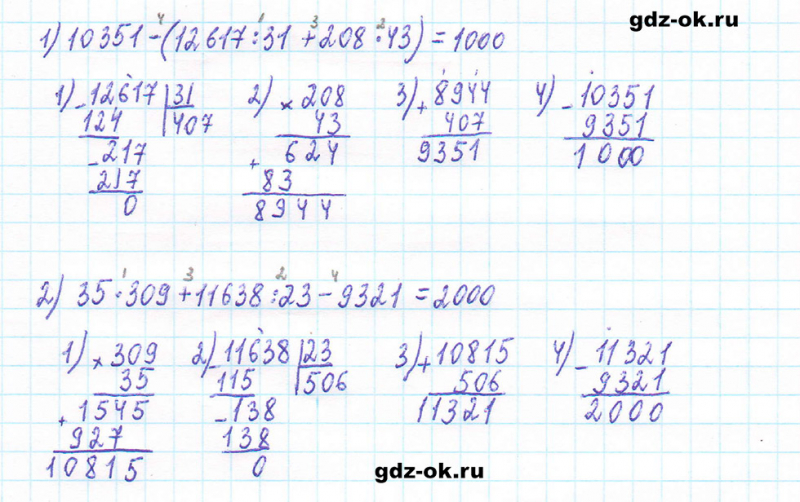 gdz-ok.ru
4 1 3 2
1) 10351-(12617:31+208·43)=1000
1) -12617 |31 2) × 208 3) + 8944 4) - 10351
124 |407 43 407 9351
-217 + 624 9351 1000
217 83
0 8944
1 3 2 4
2) 35·309+11638:23-9321=2000
1) × 309 2) -11638 |23 3) +10815 4) - 11321
35 115 |506 506 9321
+ 1545 -138 11321 2000
927 138
10815 0
gdz-ok.ru